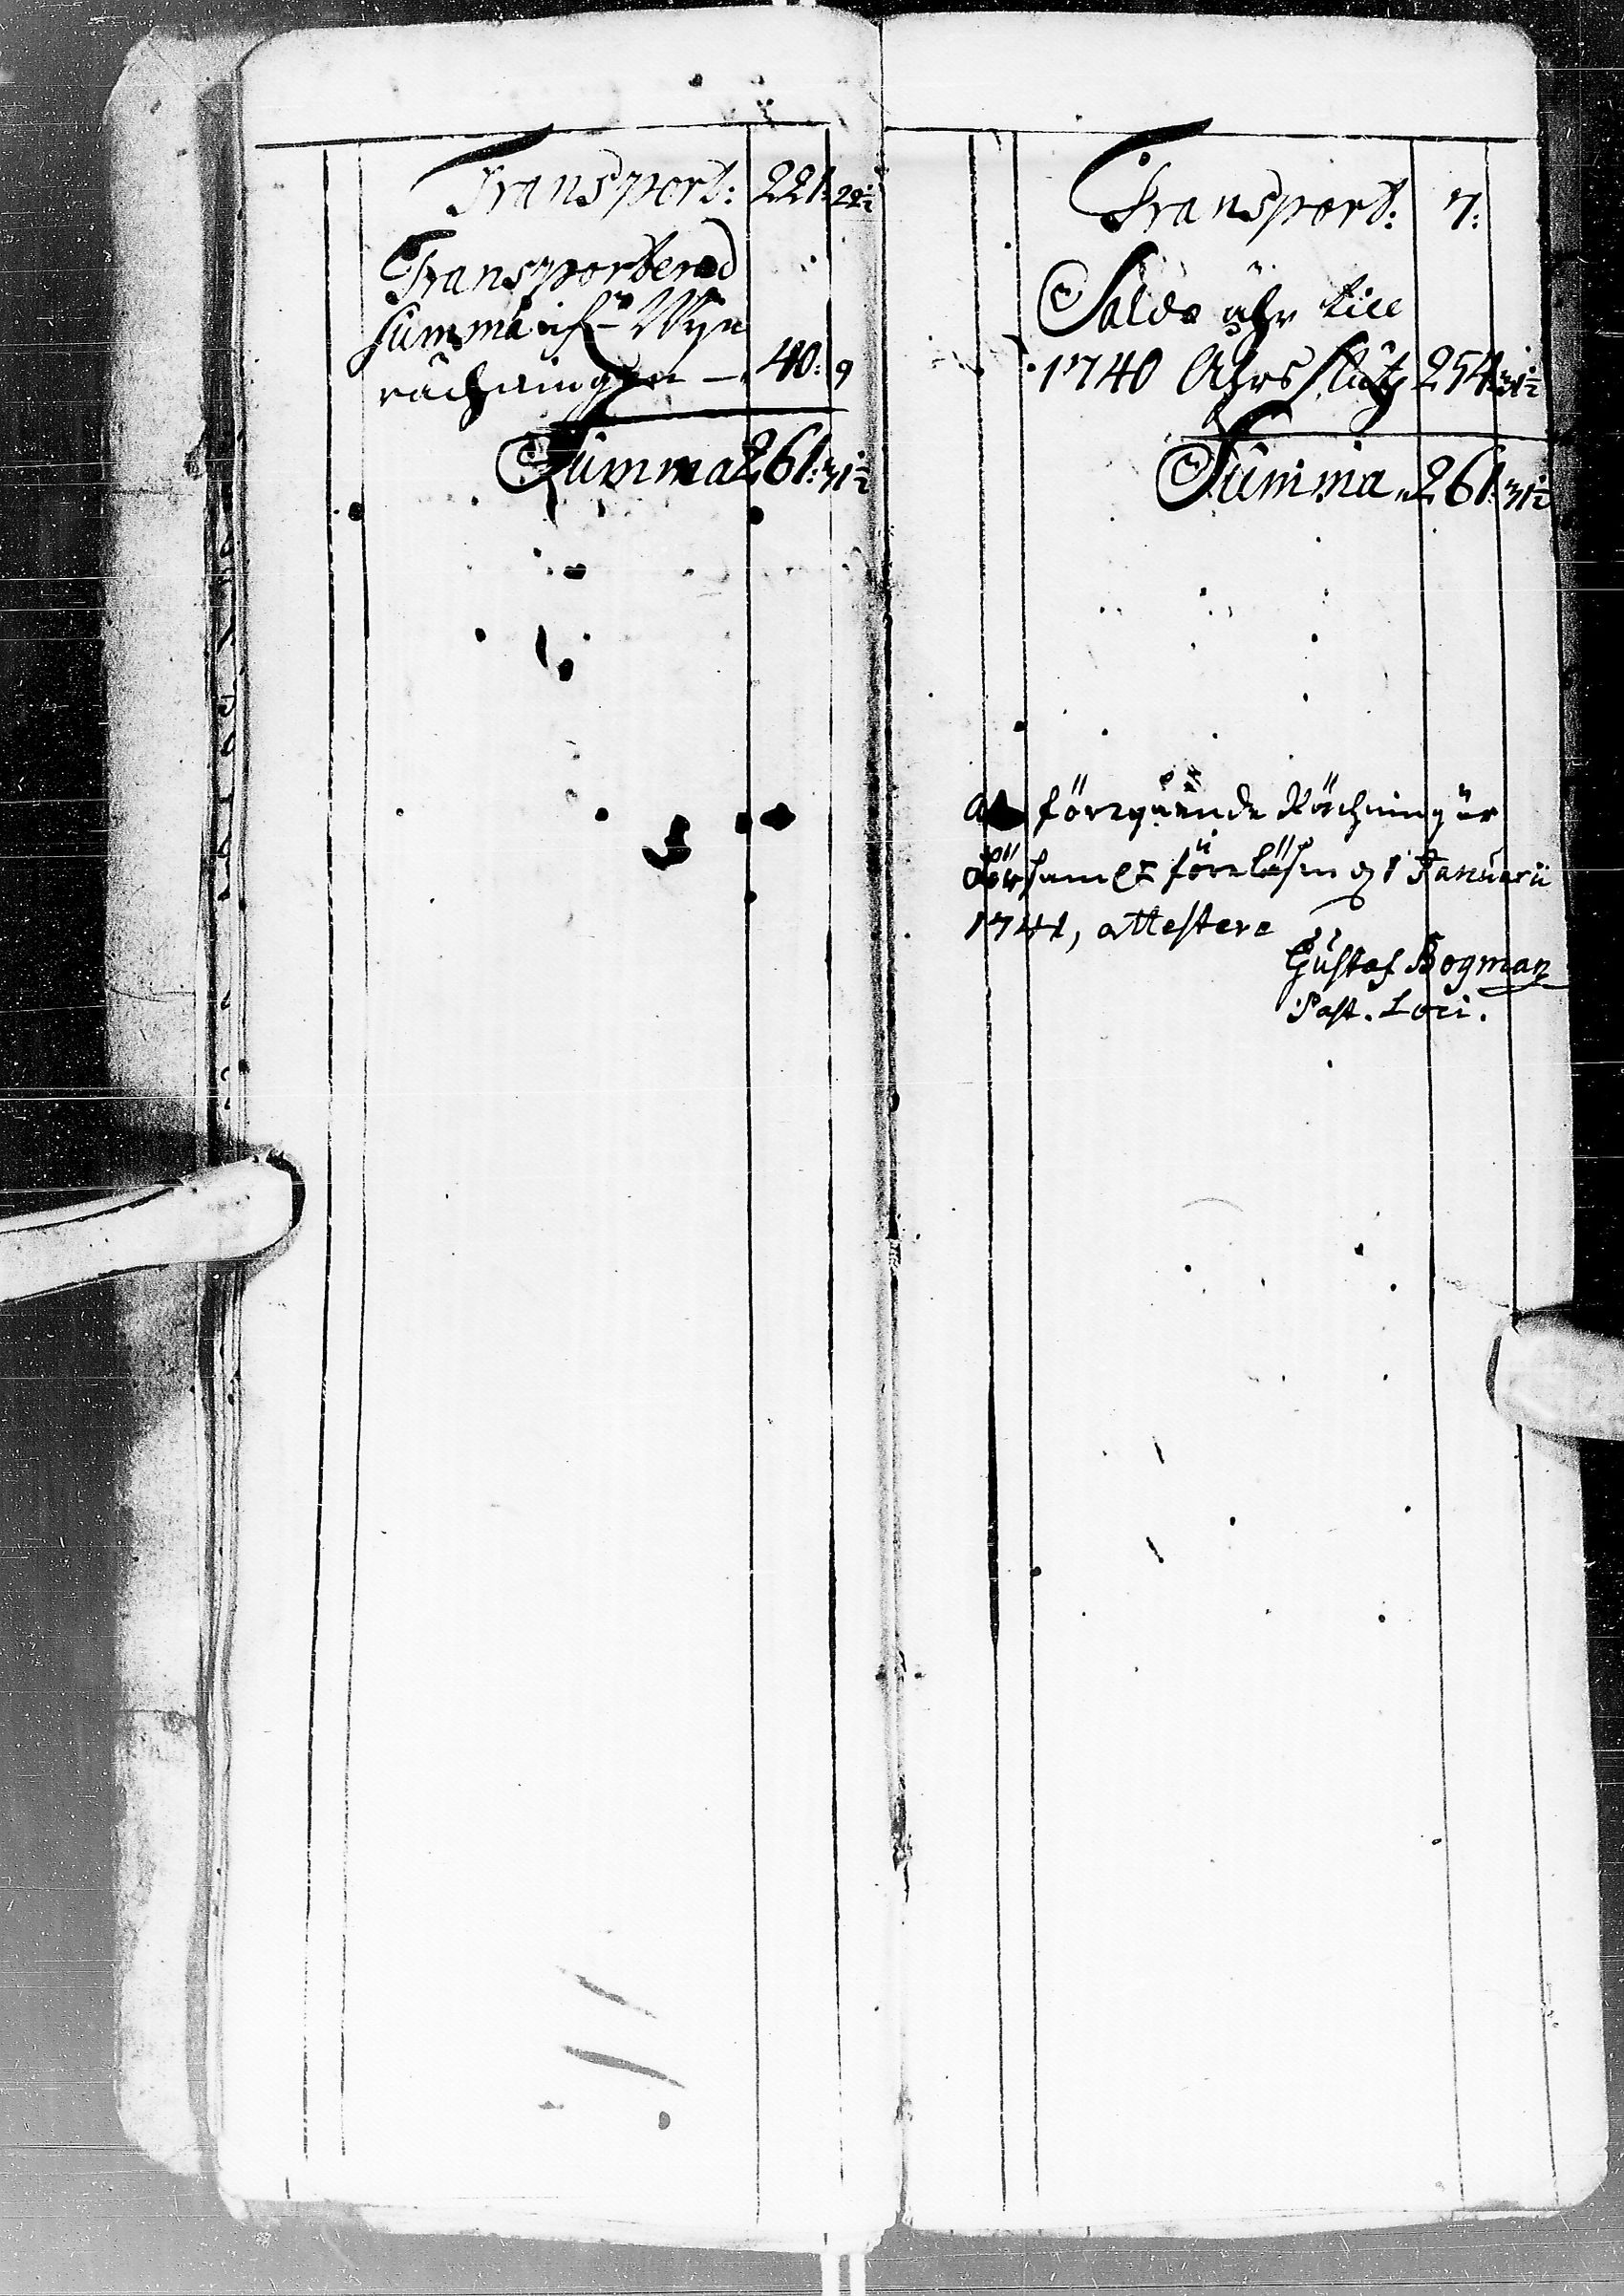 Transport: 221: 22½
Transporterad
summa ifrån Wijn
rächningen — 40: 9
Summa 261: 31½
Transport: 7:
Saldo ähr till
1740 Åhrs slut 254: 31½
Summa 261: 31½
At föregående Rächning är
Församl: föreläsen d 1 Januarii
1741, attestere
Gustaf Bogman
Past. Loci.